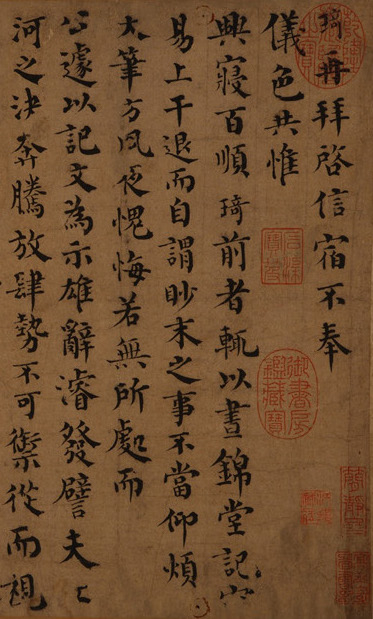 琦再拜啓信宿不奉
儀色共惟
興寢百順琦前者輒以晝錦堂記容
易上干退而自謂眇末之事不當仰煩
大筆方夙夜愧悔若無所處而
公遽以記文為示雄辭濬發譬夫江
河之決奔騰放肆勢不可禦從而視
石渠寶笈
御書房鑒藏寶